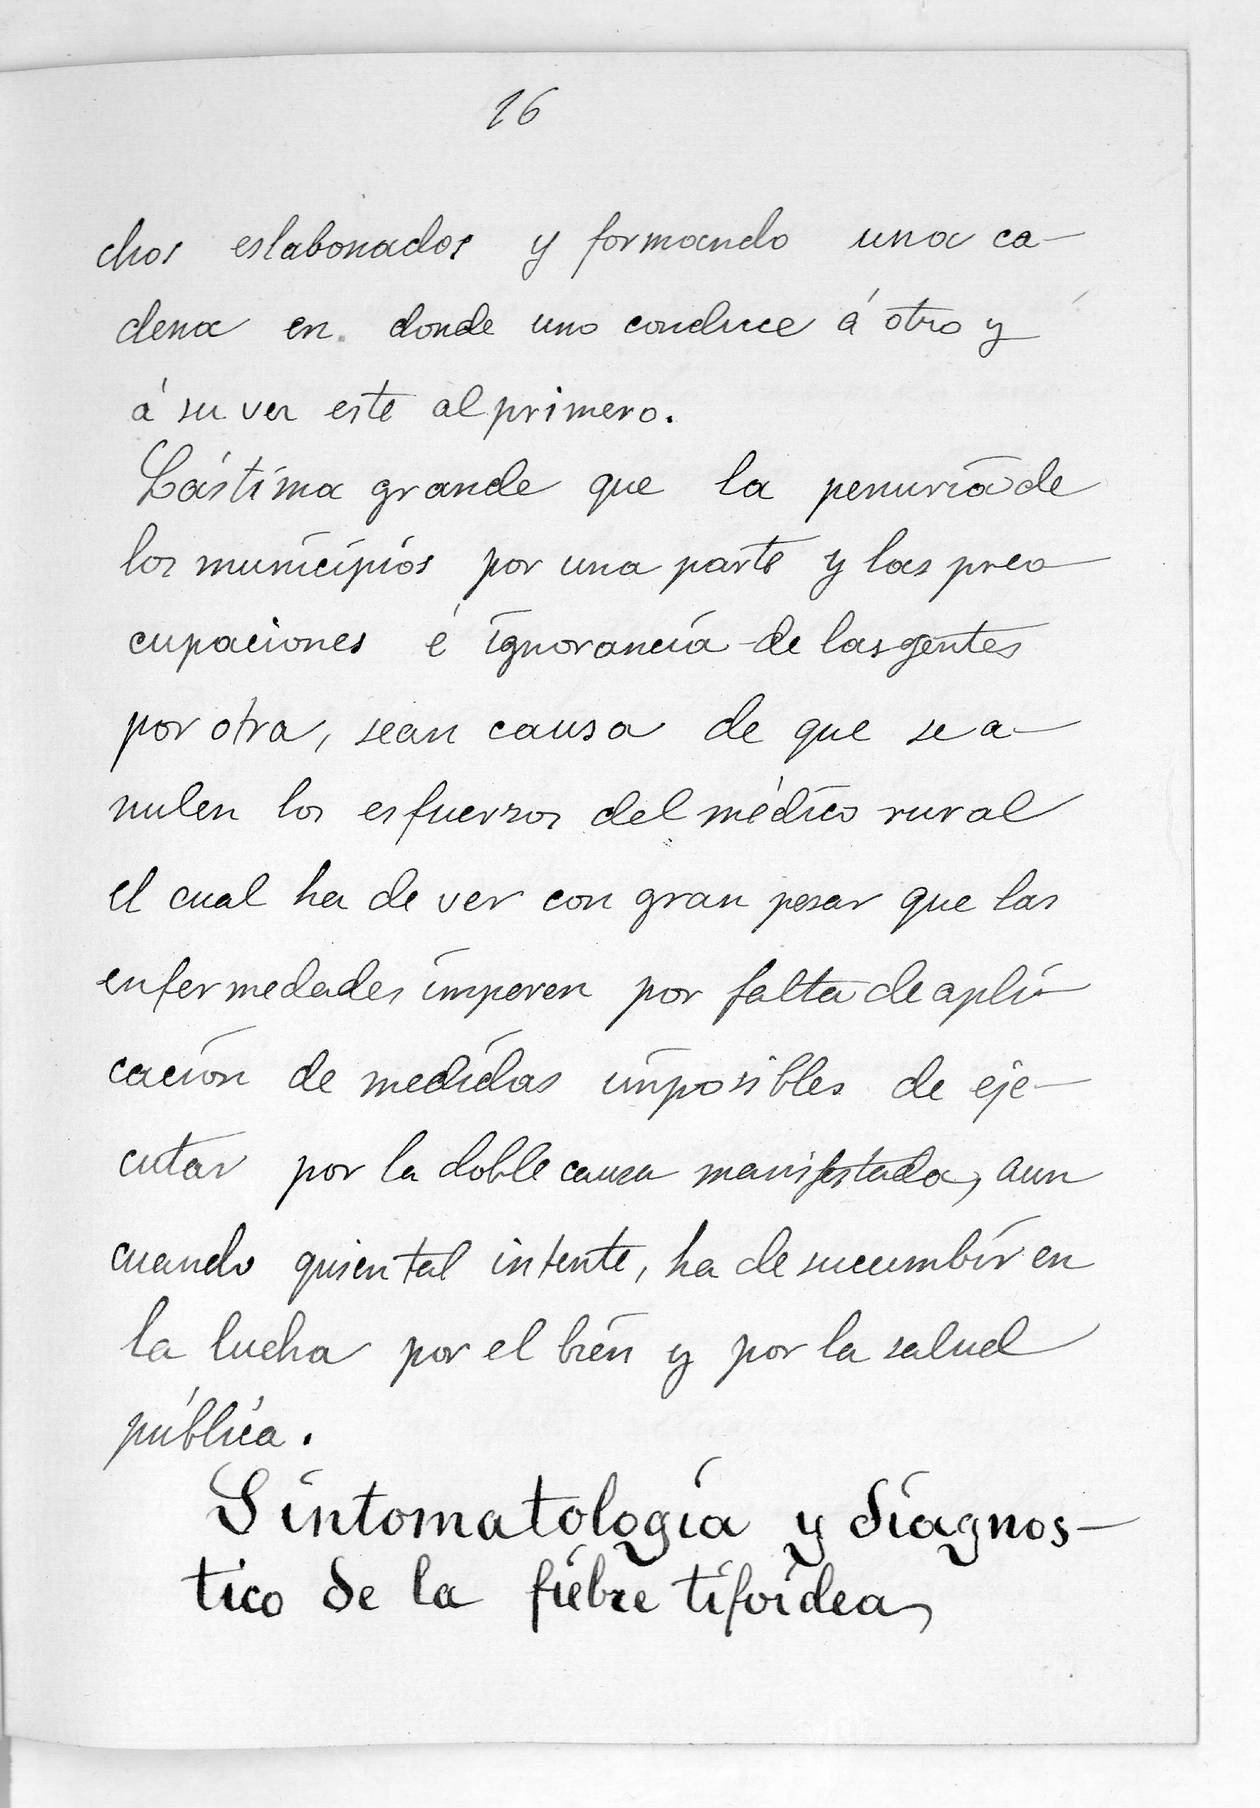 16
chos eslabonados y formando una ca-
dena en donde uno conduce á otro y
á su vez este al primero.
Lástima grande que la penuria de
los municipios por una parte y las preo
cupaciones é ignorancia de las gentes
por otra, sean causa de que se a-
nulen los esfuerzos del médico rural
el cual ha de ver con gran pesar que las
enfermedades imperen por falta de apli-
cación de medidas imposibles de eje-
cutar por la doble causa manifestada, aun
cuando quien tal intente, ha de sucumbir en
la lucha por el bien y por la salud
pública.
Sintomatología y diagnos-
tico de la fiebre tifoidea